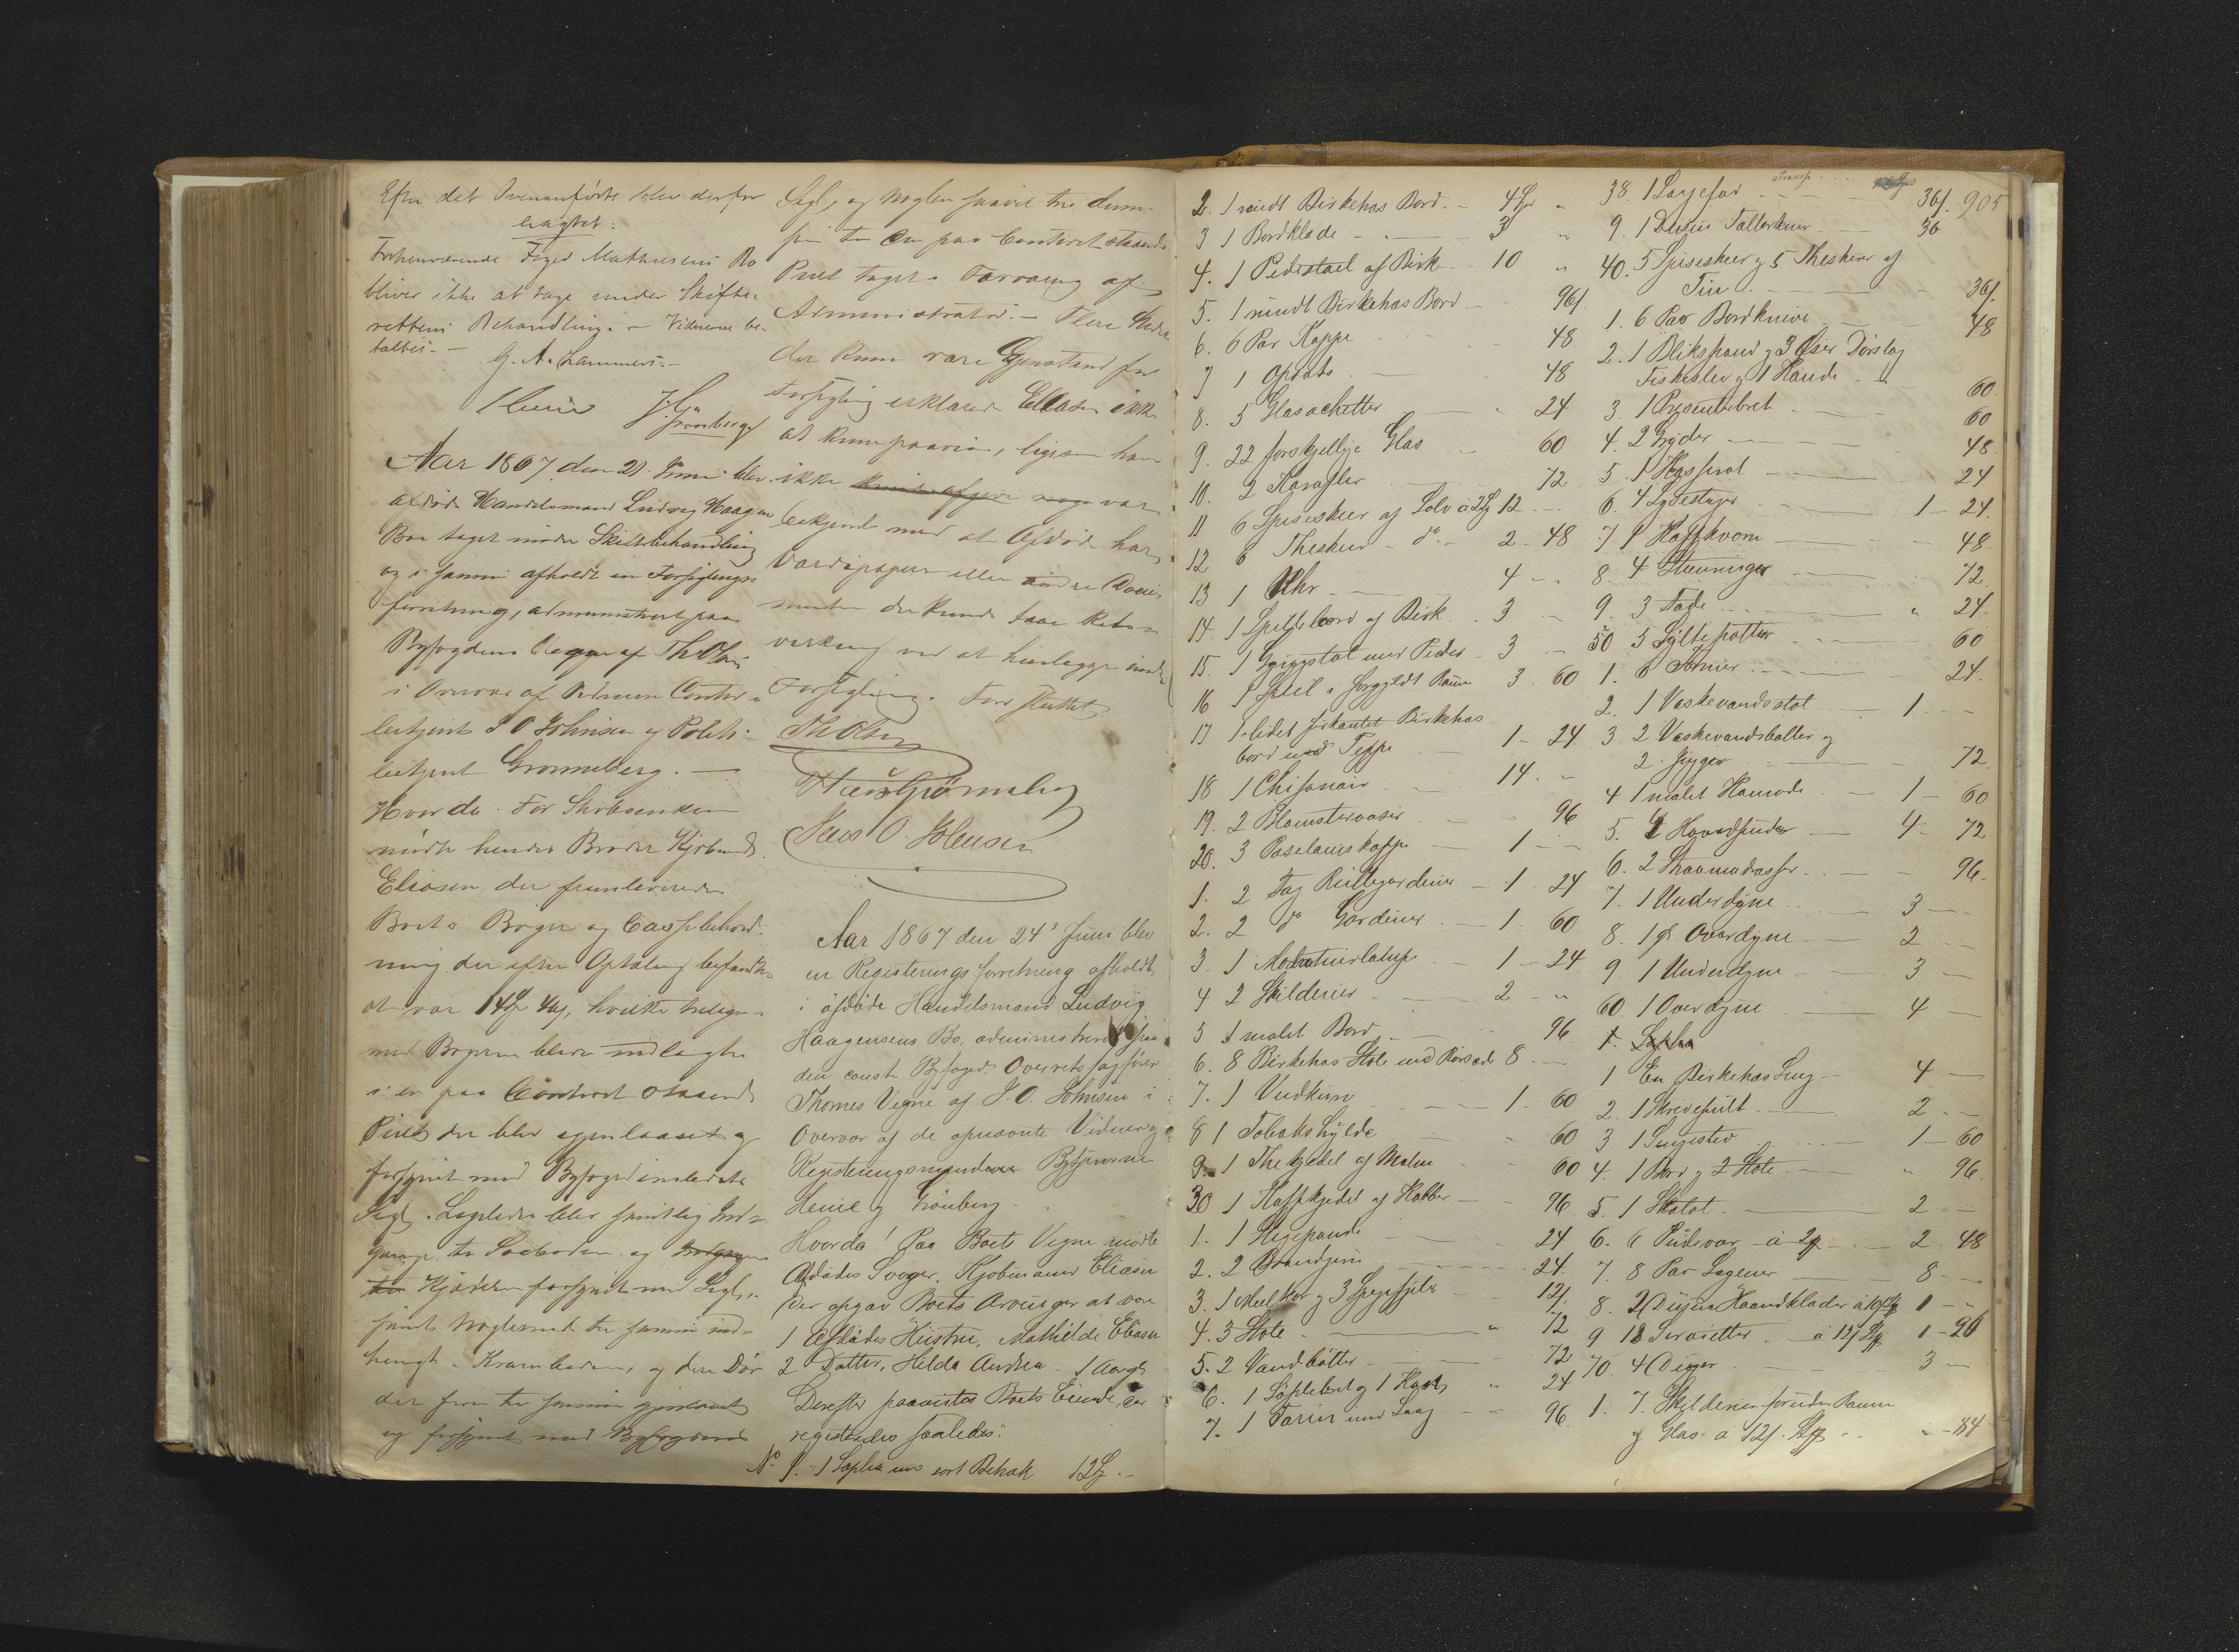 Efter det Ovenanførte blev derfor
eragtet:
Forhenværende Foged Mathiesens Bo
bliver ikke at tage under Skifte-
rettens Behandling. - Vidnerne be-
taltes. -
G. A. Lammers. -
Heine J. Grønberg
Aar 1867 den 21 Juni blev
afdøde Handelsmand Ludvig Haagens
Boe taget under Skiftebehandling
og i samme afholdt en Forseglings
forretning, administreret paa
Byfogdens Vegne af Th Olsen
i Overvær af Vidnerne Contoir-
betjent J O Johnsen og Politi-
betjent Grønneberg. -
Hvorda: For Enken
mødte hendes Broder Kjøbmd
Eliasen der fremleverede
Boets Bøger og Cassebehold-
ning der efter Optælling befandtes
at være 14 Spd, hvilke tilligemed
med Bøgerne bleve indlagte
i en paa Contoret staaende
Pult der blev igjenlaaset og
forsynet med Byfogedembedets
Segl. Ligeledes blev samtlig Ind-
gange til Søeboden og
Kjælderen forsynet med Segl,
samt Nøglerne til samme ind-
hængt i Kramboden, og den Dør
der fører til samme
og forsynet med Byfogdens
Segl, og Nøglen saavel til denne
som til den paa Contoret staaende
Pult taget i Forvaring af
Administrator. - Flere Steder
der kunne være Gjenstand for
Forsegling erklærede Eliasen ikke
at kunne paavise, ligesom han
ikke var
bekjendt med at Afdøde har
Værdipapirer eller andre Docu-
menter der kunde faae Retsvirkning
ved at henlægges under
Forsegling. Forr. sluttet
Th Olsen
Hans Grønneberg
Jens O. Johnsen
Aar 1867 den 24' Juni blev
en Registeringsforretning afholdt
i afdøde Handelsmand Ludvig
Haagensens Bo, administreret paa
den const. Byfoged Overretssagfører
Thomes Vegne af J. O. Johnsen i
Overvær af de opnævnte Vidner og
Registeringsmændene Bytjenerne
Heine og Grönberg.
Hvorda! Paa Boets Vegne mødte
Afdødes Svoger, Kjøbmand Eliasen
Der opgav Boets Arvinger at være
1 Afdødes Hustru, Mathilde Eliasen
2 Datter, Hilda Andrea - 1 Aargl
Derefter paavistes Boets Eiendele, der
registeredes saaledes:
No 1. - 1 Sopha med sort Betræk 12 Sp. -
2. 1 rundt Birketræs Bord. - 4 Spd "
3 1 Bordklæde - - 3 "
4. 1 Pedestael af Birk - 10 "
5. 1 rundt Birketræs Bord - 96ſ
6. 6 Par Kopper - 48
7 1 Opsats - 48
8. 5 Glasachetter - 24
9. 22 forskjellige Glas - 60
10. 2 Karafler - 72
11 6 Spiseskeer af Sølv à 2 Sp 12 -
12 6 Theskeer - do - 2 - 48
13 1 Uhr - 4 - "
14. 1 Spillebord af Birk - 3 -
15. 1 Gyngstol med Puder - 3 -
16 1 Speil i forgyldt Ramme 3. 60
17 1 lidet firkantet Birketræs
bord med Teppe 1 - 24
18 1 Chifonair - 14. -
19. 2 Blomstervaser - 96
20. 3 Poselainskopper - 1 - -
1. 2 Fag Rullegardiner - 1. 24
2. 2 do Gardiner - 1. 60
3. 1 Moderatuirlampe - 1 - 24
4 2 Skilderier - 2 - "
5 1 malet Bord - 96
6. 8 Birketræs Stole med Rørsæde 8. -
7. 1 Vedkurv - 1. 60
8 1 Tobakshylde " 60
9. 1 Thekjedel af Malm - 60
30 1 Kaffekjedel af Kobber - 96
1. 1 Stegepande - 24
2. 2 Brandjern - 24
3. 1 Meelkar og 3 Spegefjele - 12ſ
4. 3 Stole - " 72
5. 2 Vandbøtter - 72
6. 1 " 24
7. 1 Tærin med Laag - 96
Transp.
905
38. 1 36ſ
9. 1 Dusin Tallerkner - 36
40. 5 Spiseskeer og 5 Theskeer af
Tin - 36ſ
1. 6 Par Bordknive 48
2. 1 Blikspand og 3 Øser Dørslag
Fiskeslev og 1 Kande - 60
3. 1 Presenterbret - 60
4. 2 Gryder - 48
5. 1 24
6. 4 Lysestager - 1 - 24.
7 1 Kaffekværn - 48
8. 4 72
9. 3 Fade - " 24
50 5 Syltepotter - 60
1. 6 Former - 24.
2. 1 Vaskevandsstol - 1 -
3 2 Vaskevandsboller og
2 Mugger - 72
4 1 malet Komode - 1 - 60
5. 4 Hovedpuder - 4 - 72
6. 2 Straamadrasser - 96
7. 1 Underdyne - 3 -
8. 1 gl. Overdyne - 2 -
9 1 Underdyne - 3 -
60. 1 Overdyne - 4 -
1. Sopha
1 En Birketræs Seng - 4 -
2. 1 Skrivepult - 2 -
3 1 Sengested - 1 - 60
4. 1 Bord og 2 Stole - " 96
5. 1 Skatol - 2 -
6. 6 Pudevar à - 2. 48
7. 8 Par Lagener - 8 -
8. 2 Dusin Haandklæder à 1 -
9 18 Servietter - à 12ſ 1 - 96
70. 4 Duger - 3 -
1. 7. Skylderier foruden Ramme
og Glas à 12ſ " - 84